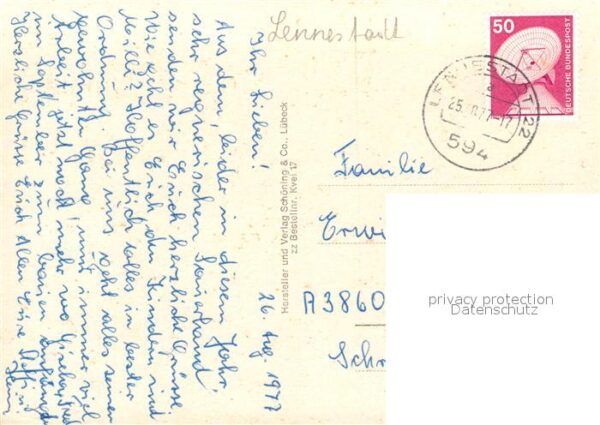 Lennestadt
50
DEUTSCHE BUNDESPOST
LENNESTADT 22
25. 8.77-17
594
26. Aug. 1977
Ihr Lieben!
Aus dem, leider in diesem Jahr,
sehr regnerischen Sauerland
senden wir Euch herzliche Grüsse.
Wie geht es Euch den Kindern und
Milli? Hoffentlich alles in bester
Ordnung. Bei uns geht alles seinen
gewohnten Gang, und immer viel
Arbeit, jetzt noch mehr wo
im September zum bauen
Herzliche Grüsse Euch Allen Eure
Hersteller und Verlag Schöning & Co., Lübeck
zz Bestellnr. Kvei 17
Familie
Erwi
A3860
Schr
privacy protection
Datenschutz